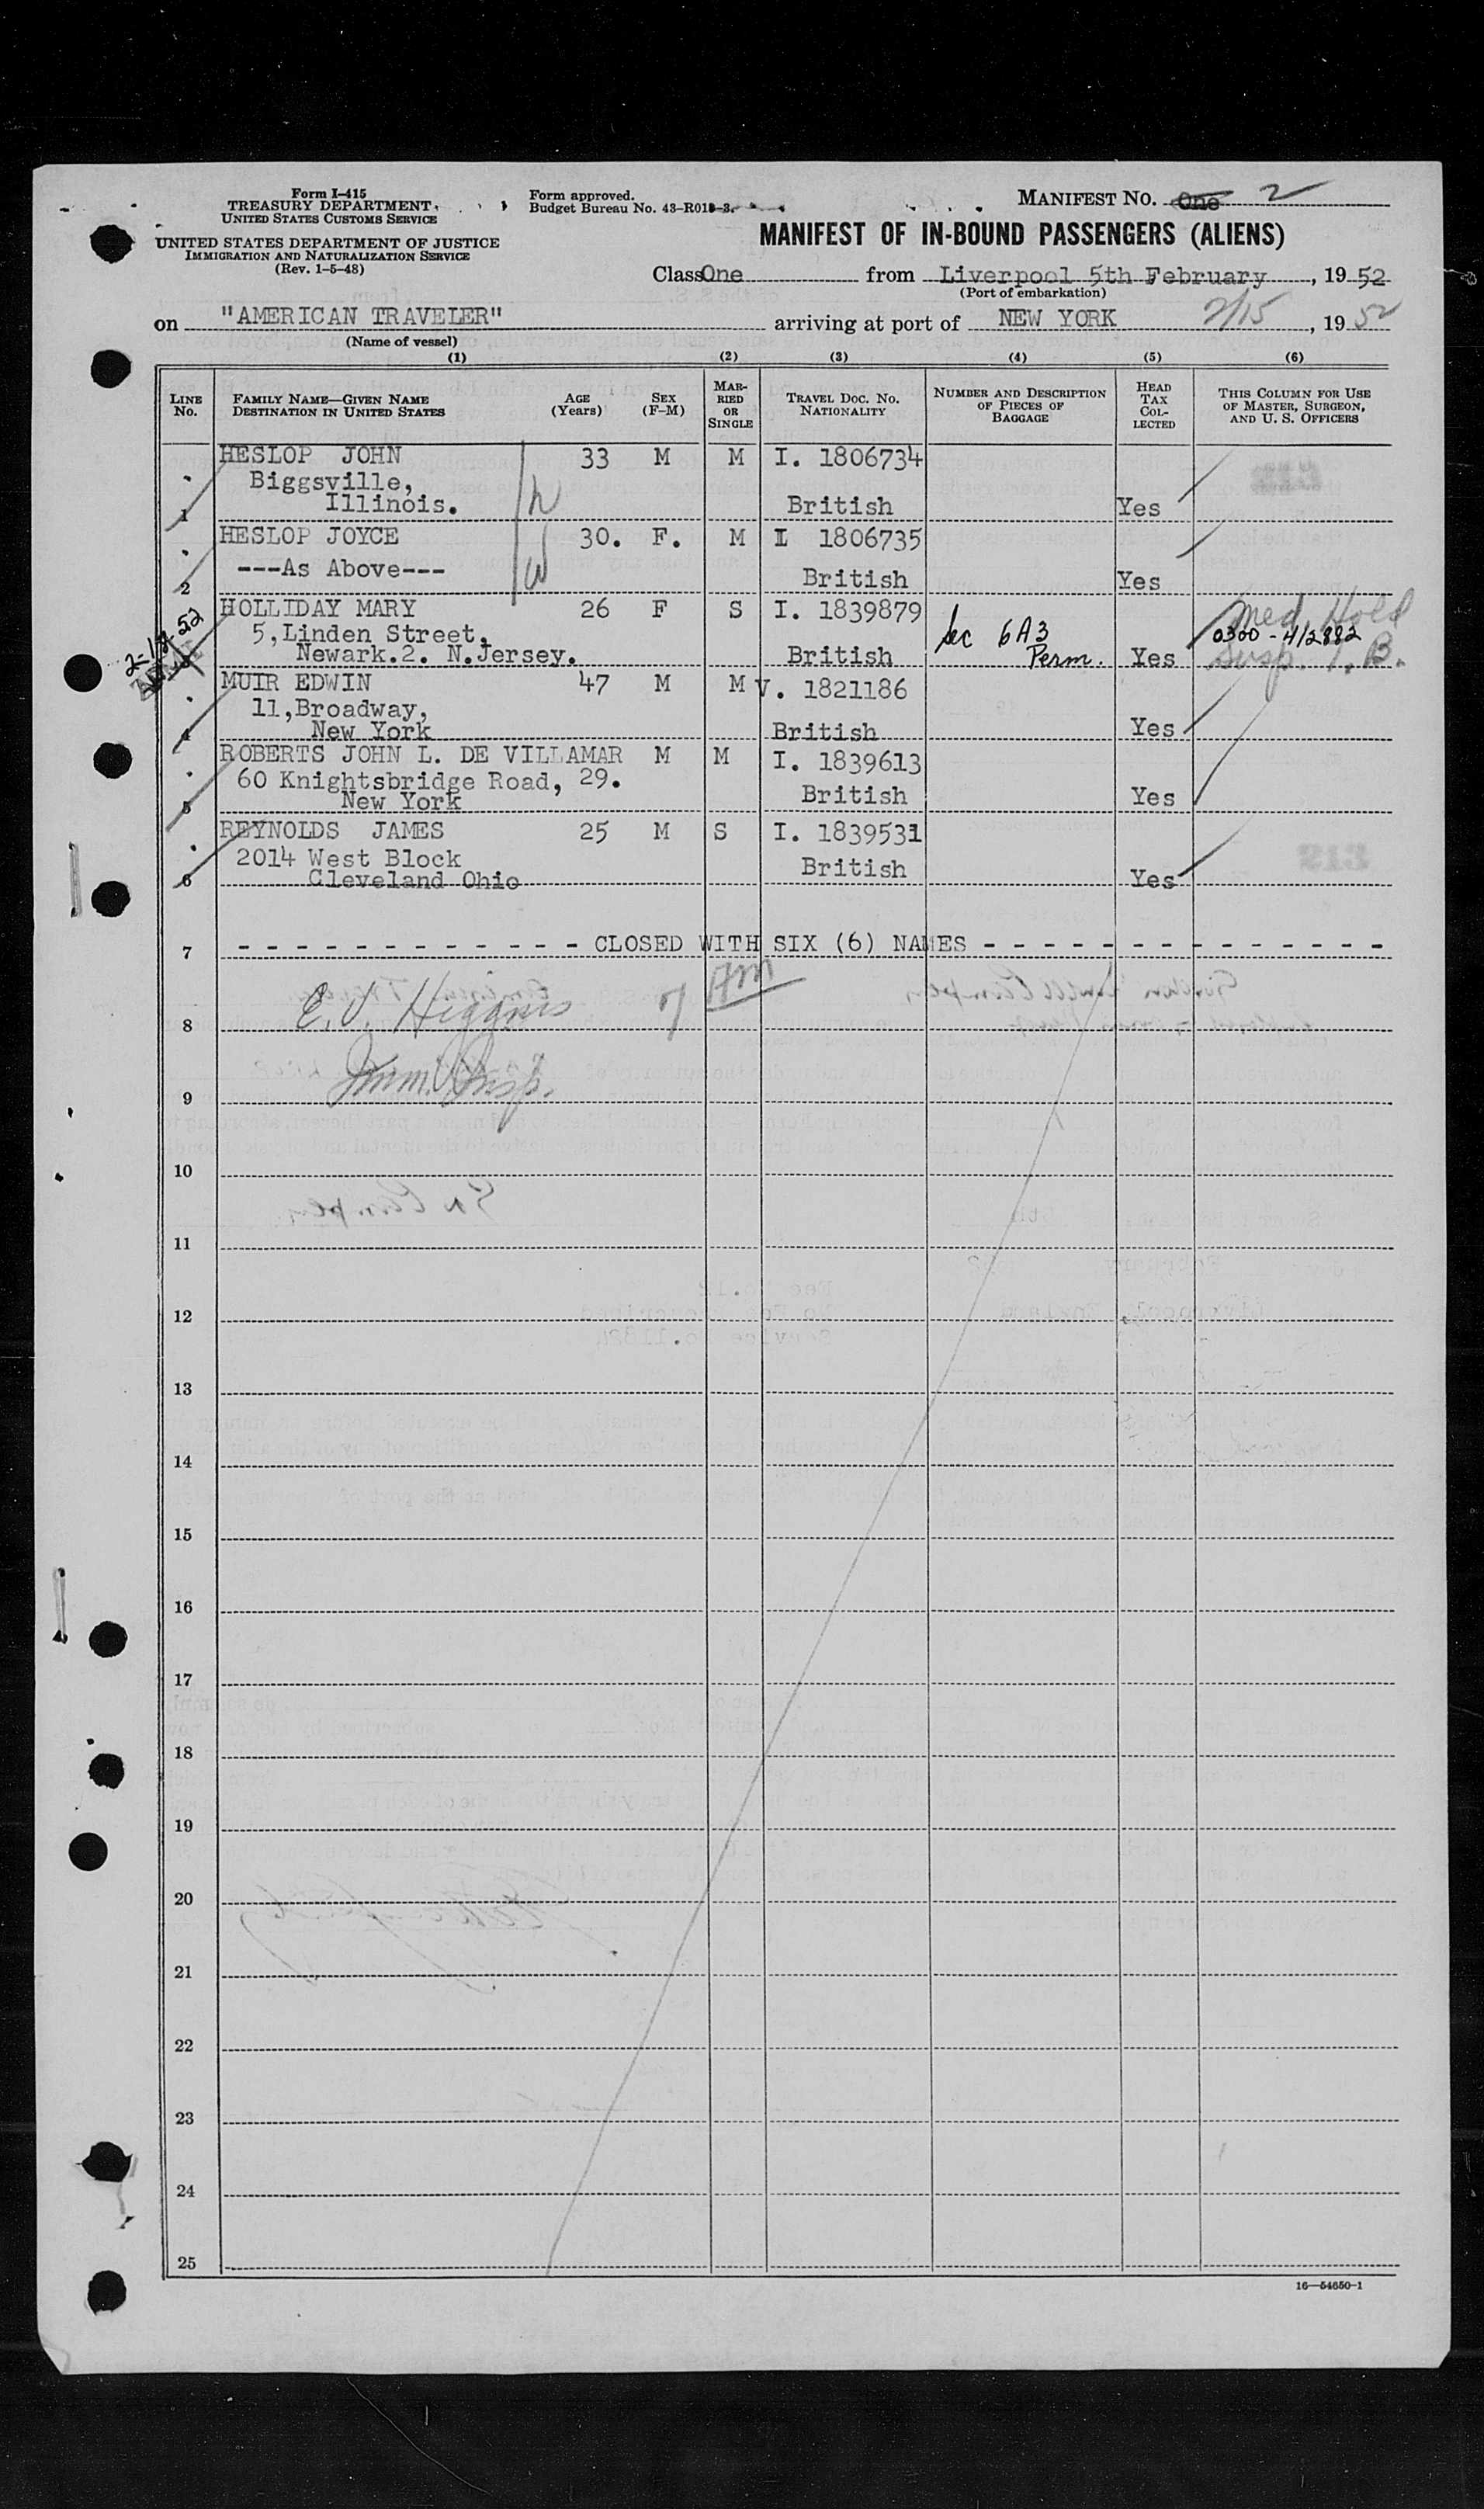 Form I-415
TREASURY DEPARTMENT
UNITED STATES CUSTOMS SERVICE
UNITED STATES DEPARTMENT OF JUSTICE
IMMIGRATION AND NATURALIZATION SERVICE
(Rev. 1-5-48)
Form approved.
Budget Bureau No. 43-R018-3.
MANIFEST NO. One 2
MANIFEST OF IN-BOUND PASSENGERS (ALIENS)
Class One from Liverpool 5th February, 1952
(Port of embarkation)
on "AMERICAN TRAVELER" arriving at port of NEW YORK 2/15, 1952
(Name of vessel)
(1) (2) (3) (4) (5) (6)
LINE No. FAMILY NAME—GIVEN NAME DESTINATION IN UNITED STATES AGE (Years) SEX (F-M) MARRIED OR SINGLE TRAVEL DOC. NO. NATIONALITY NUMBER AND DESCRIPTION OF PIECES OF BAGGAGE HEAD TAX COLLECTED THIS COLUMN FOR USE OF MASTER, SURGEON, AND U. S. OFFICERS
HESLOP JOHN 33 M M I. 1806734
Biggsville,
1 Illinois. h British Yes
HESLOP JOYCE 30. F. M I 1806735
2 ---As Above--- W British Yes
HOLLIDAY MARY 26 F S I. 1839879 Med. Hold
5,Linden Street, Sec 6A3 0300-412882
Newark.2. N.Jersey. British Perm. Yes Susp. I.B.
52
MUIR EDWIN 47 M M V. 1821186
11,Broadway,
4 New York British Yes
ROBERTS JOHN L. DE VILLAMAR M M I. 1839613
60 Knightsbridge Road, 29.
5 New York British Yes
REYNOLDS JAMES 25 M S I. 1839531
2014 West Block British
6 Cleveland Ohio Yes
7 - - - - - - - - - - - - - - CLOSED WITH SIX (6) NAMES - - - - - - - - - - - - - - -
8 E. J. Higgins
9 Imm. Insp.
10
11
12
13
14
15
16
17
18
19
20
21
22
23
24
25
16—54650-1